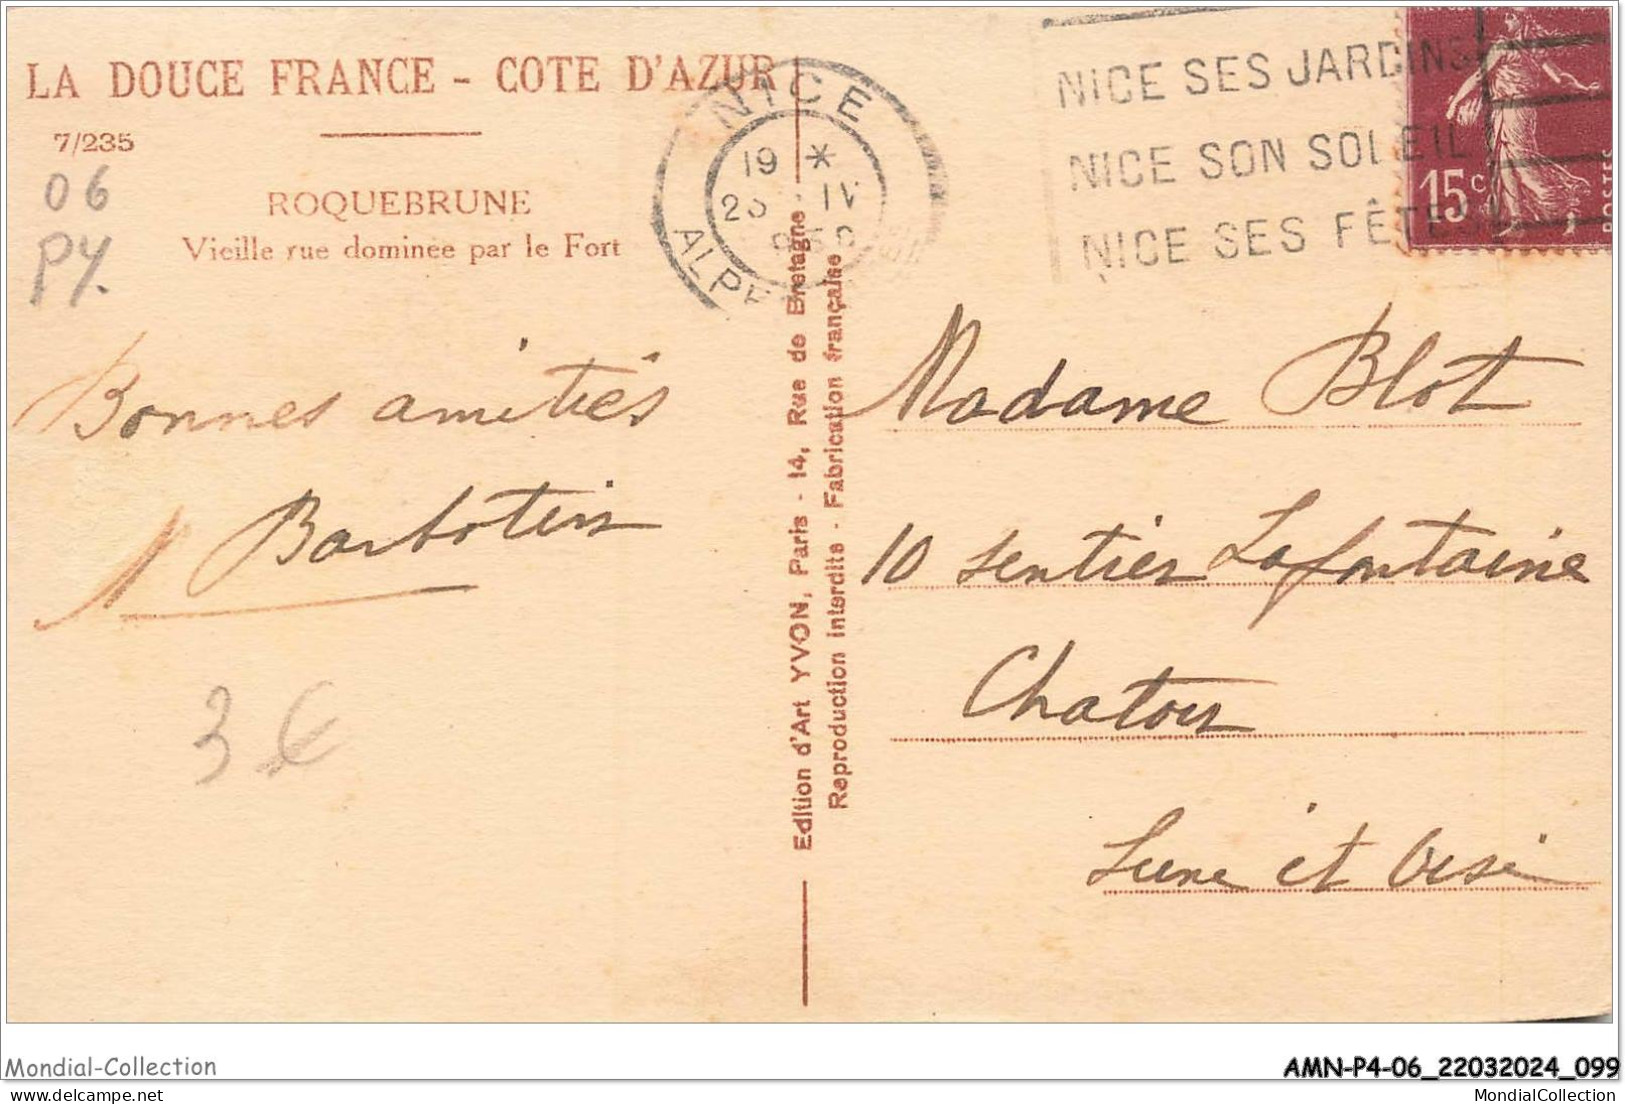 LA DOUCE FRANCE - COTE D'AZUR
7/235
ROQUEBRUNE
Vieille rue dominée par le Fort
06
P4.
Bonnes amitiés
Barbotin
3 €
NICE
19 *
IV
ALPE
NICE SES JARDINS
NICE SON SOLEIL
NICE SES FÊTE
15c
POSTES
Edition d'Art YVON, Paris - 14, Rue de Bretagne
Reproduction interdite - Fabrication française
Madame Blot
10 sentier Lafontaine
Chatou
Seine et Oise
Mondial-Collection
AMN-P4-06_22032024_099
www.delcampe.net
MondialCollection